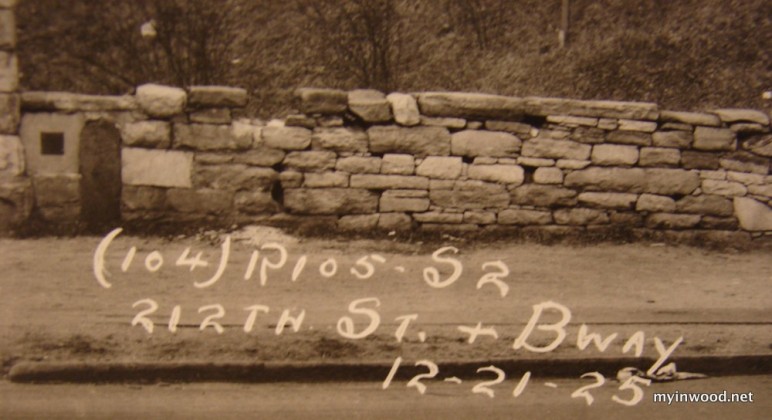 (104) R105-S2
212TH ST. + BWAY
12-21-25
myinwood.net